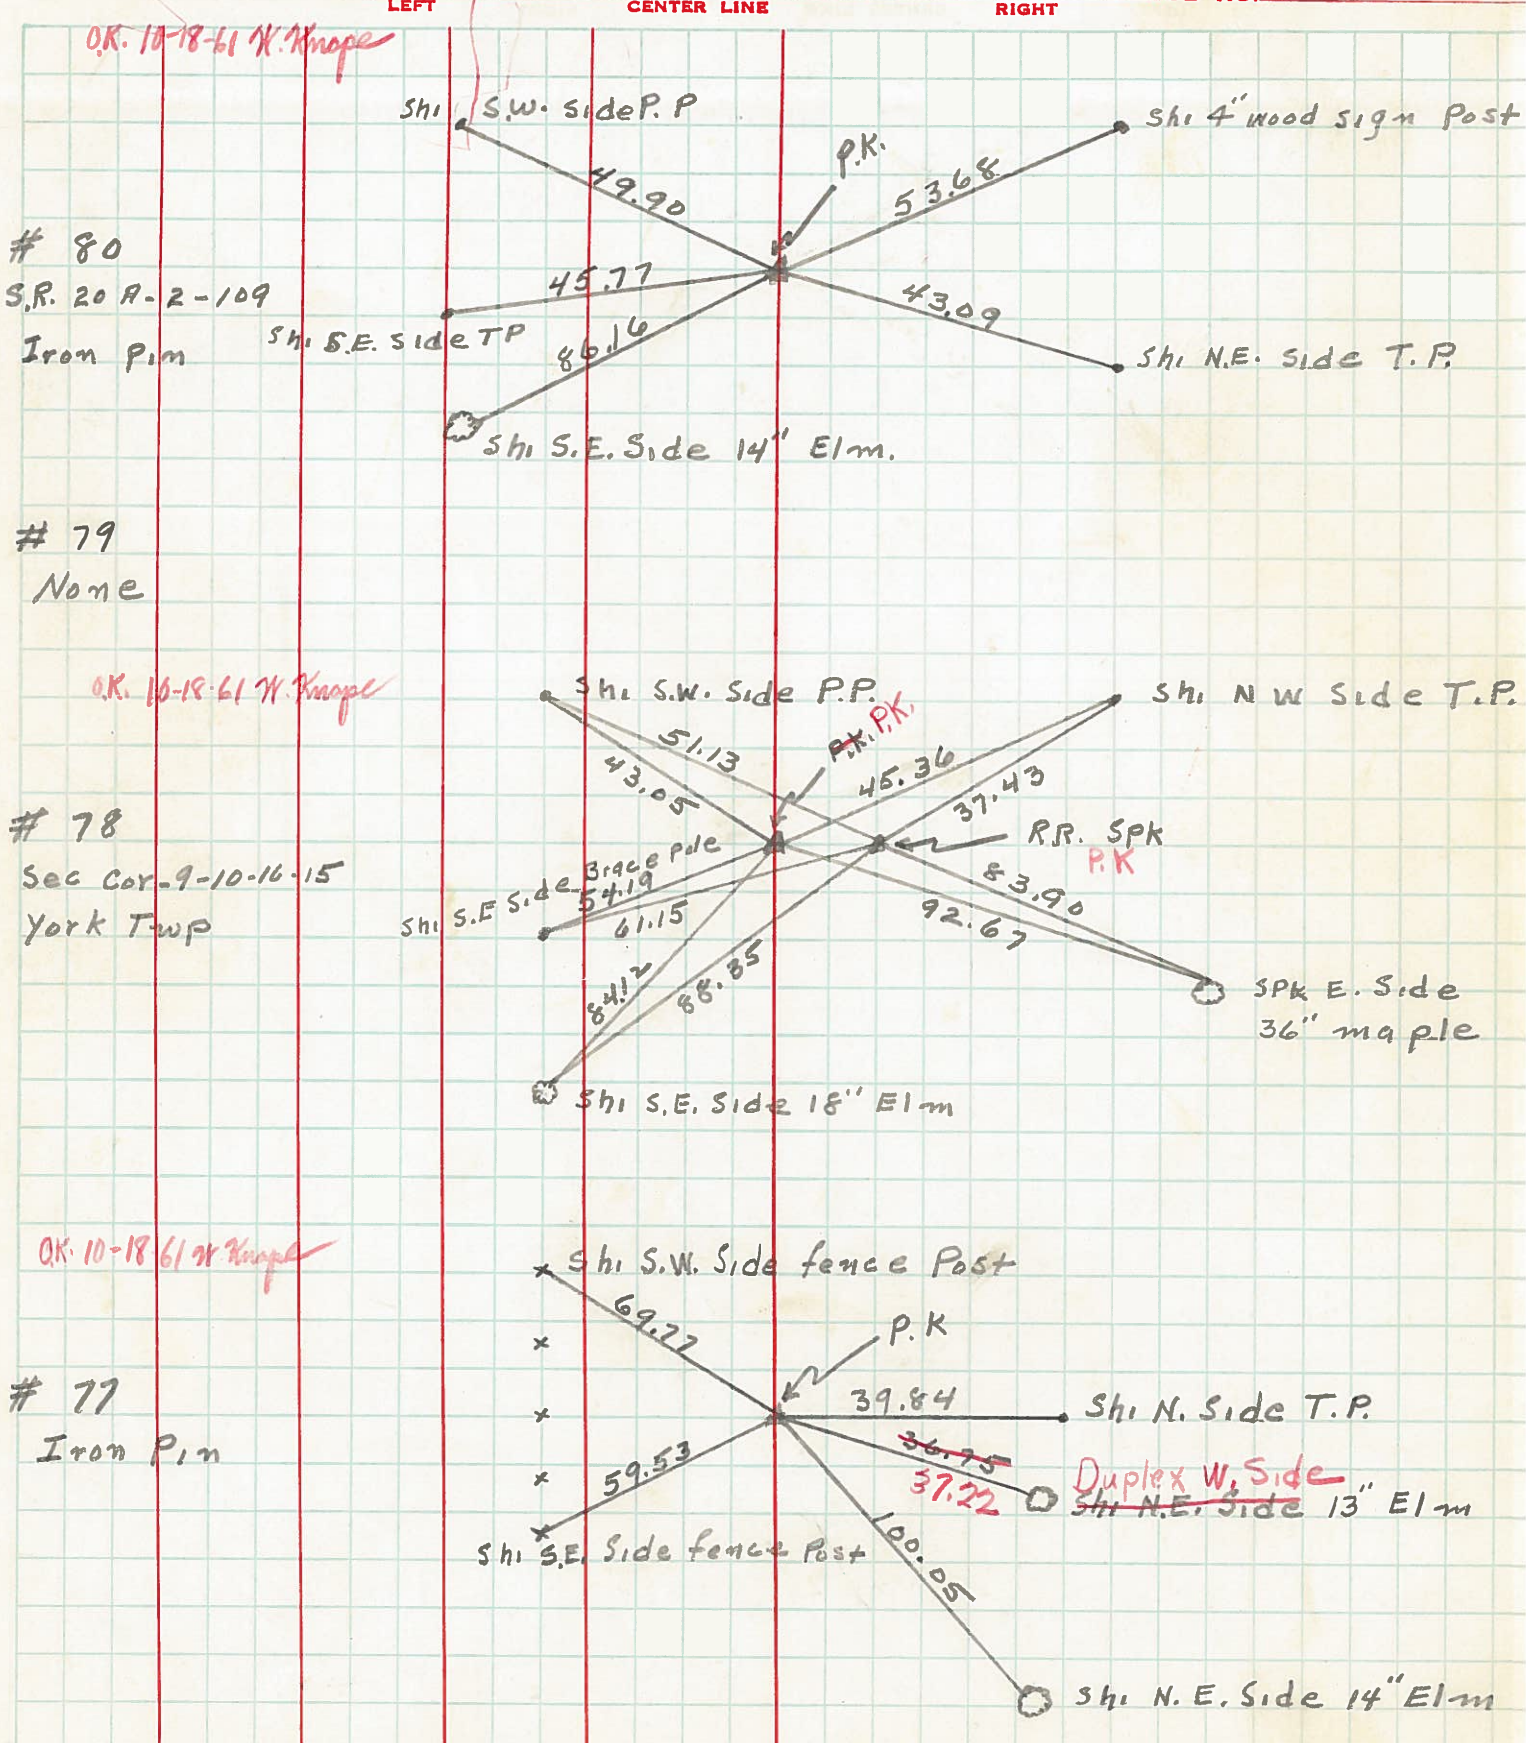 LEFT
CENTER LINE
RIGHT
O.K. 10-18-61 W. Knape
Shi S.W. Side P.P
Shi 4" wood sign Post
P.K.
49.90
53.68
# 80
S.R. 20 A-2-109
Iron Pin
45.77
43.09
Shi S.E. Side TP
86.16
Shi N.E. Side T.P.
Shi S.E. Side 14" Elm.
# 79
None
O.K. 10-18-61 W. Knape
Shi S.W. Side P.P.
Shi N W Side T.P.
P.K. P.K.
51.13
43.05
45.36
37.43
# 78
Sec Cor-9-10-16-15
York Twp
R.R. SPK
P.K
Shi S.E Side Brace Pole
54.19
61.15
83.90
92.67
84.12
88.35
SPK E. Side
36" maple
Shi S.E. Side 18" Elm
O.K. 10-18-61 W Knape
Shi S.W. Side fence Post
69.77
P.K
# 77
Iron Pin
39.84
Shi N. Side T.P.
36.75
37.22
Duplex W. Side
Shi N.E. Side 13" Elm
59.53
Shi S.E. Side fence Post
100.05
Shi N.E. Side 14" Elm